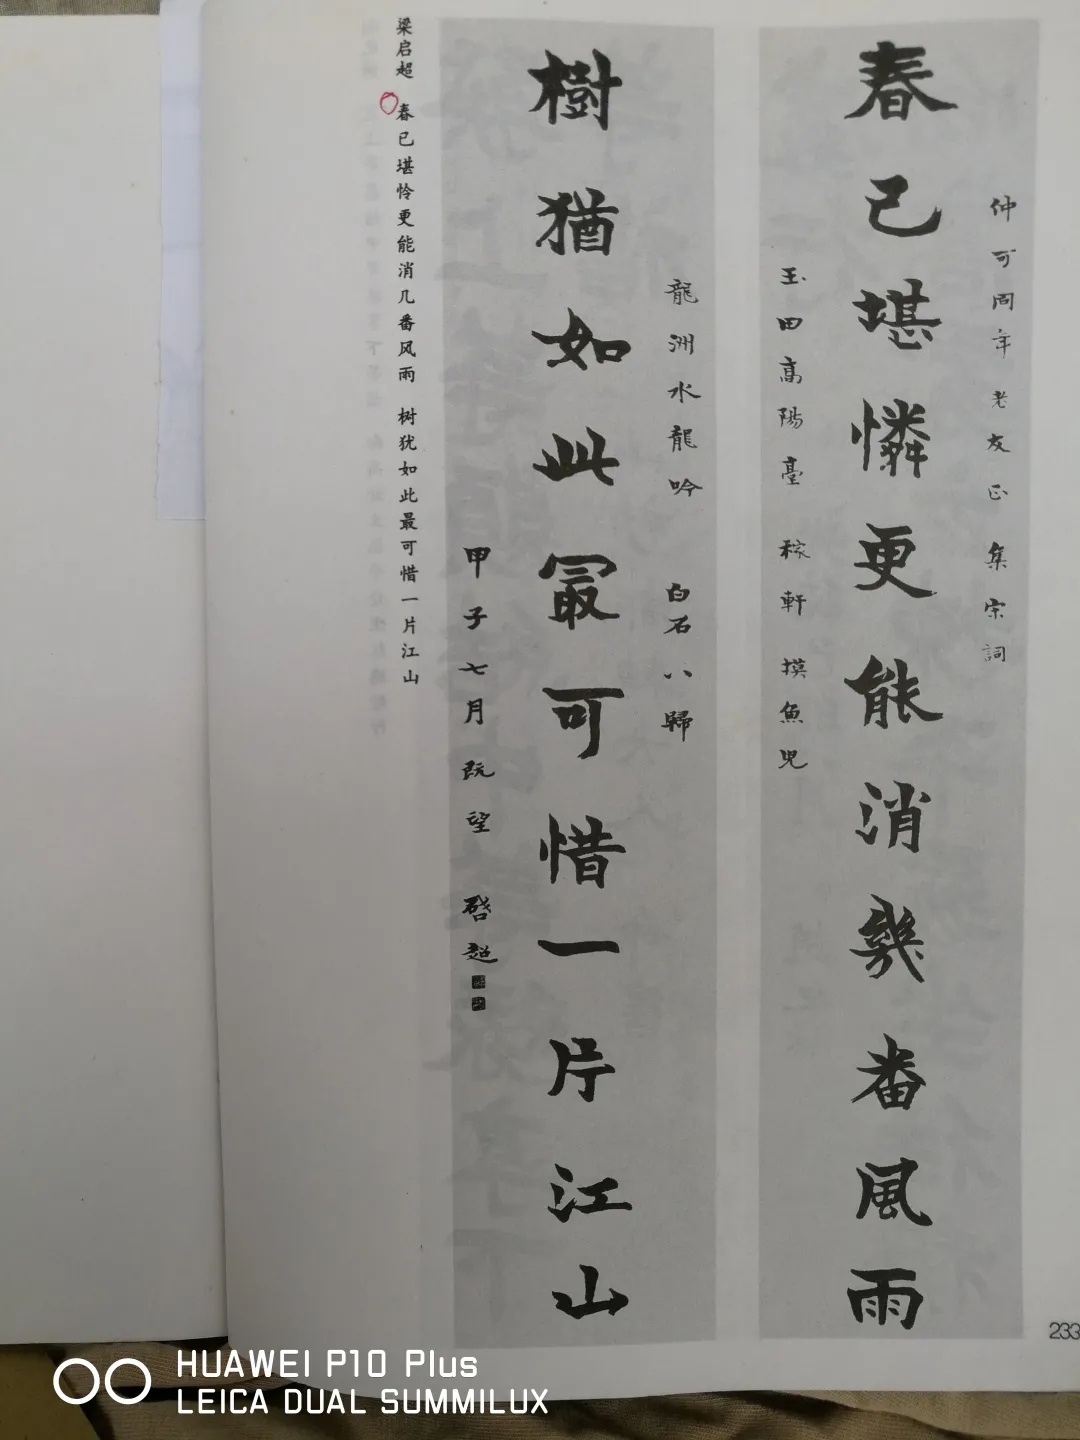 仲可同年老友正 集宋詞
春已堪憐更能消幾番風雨
玉田高陽臺 稼軒摸魚兒
龍洲水龍吟 白石八歸
樹猶如此冣可惜一片江山
甲子七月既望 啓超
梁启超 春已堪怜更能消几番风雨 树犹如此最可惜一片江山
233
HUAWEI P10 Plus
LEICA DUAL SUMMILUX